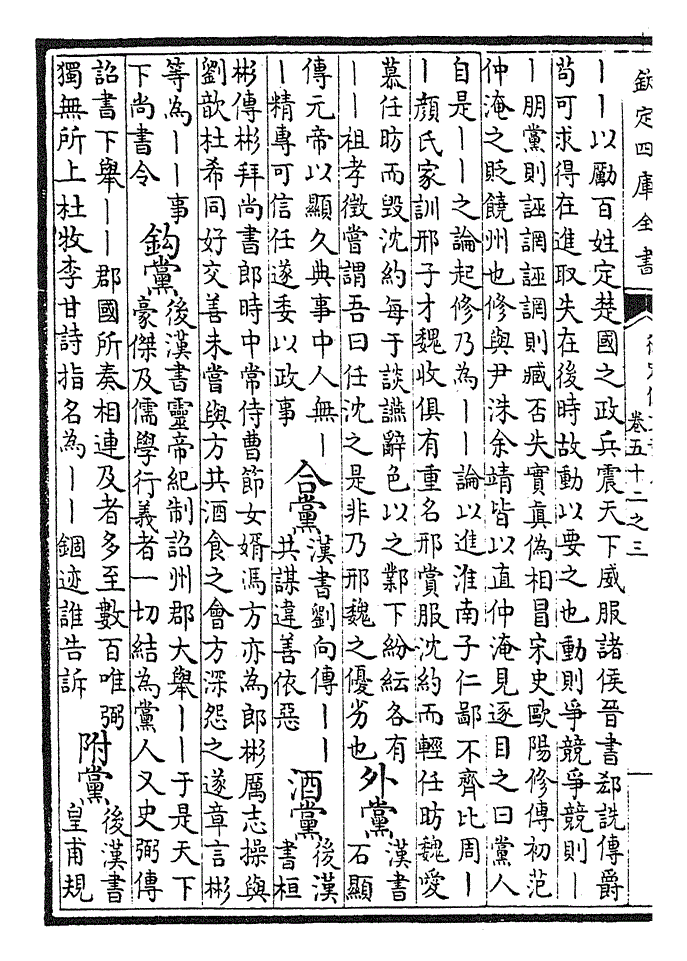 欽定四庫全書
卷五十二之三
｜｜以勵百姓定楚國之政兵震天下威服諸侯晉書郄詵傳爵
苟可求得在進取失在後時故動以要之也動則爭競爭競則｜
｜朋黨則誣誷誣誷則臧否失實真偽相冒宋史歐陽修傳初范
仲淹之貶饒州也修與尹洙余靖皆以直仲淹見逐目之曰黨人
自是｜｜之論起修乃為｜｜論以進淮南子仁鄙不齊比周｜
｜顔氏家訓邢子才魏收俱有重名邢賞服沈約而輕任昉魏愛
慕任昉而毀沈約每于談讌辭色以之鄴下紛紜各有
｜｜祖孝徵嘗謂吾曰任沈之是非乃邢魏之優劣也
外黨
漢書
石顯
傳元帝以顯久典事中人無｜
｜精專可信任遂委以政事
合黨
漢書劉向傳｜｜
共謀違善依惡
酒黨
後漢
書桓
彬傳彬拜尚書郎時中常侍曹節女婿馮方亦為郎彬厲志操與
劉歆杜希同好交善未嘗與方共酒食之會方深怨之遂章言彬
等為｜｜事
下尚書令
鈎黨
後漢書靈帝紀制詔州郡大舉｜｜于是天下
豪傑及儒學行義者一切結為黨人又史弼傳
詔書下舉｜｜郡國所奏相連及者多至數百唯弼
獨無所上杜牧李甘詩指名為｜｜錮迹誰告訴
附黨
後漢書
皇甫規